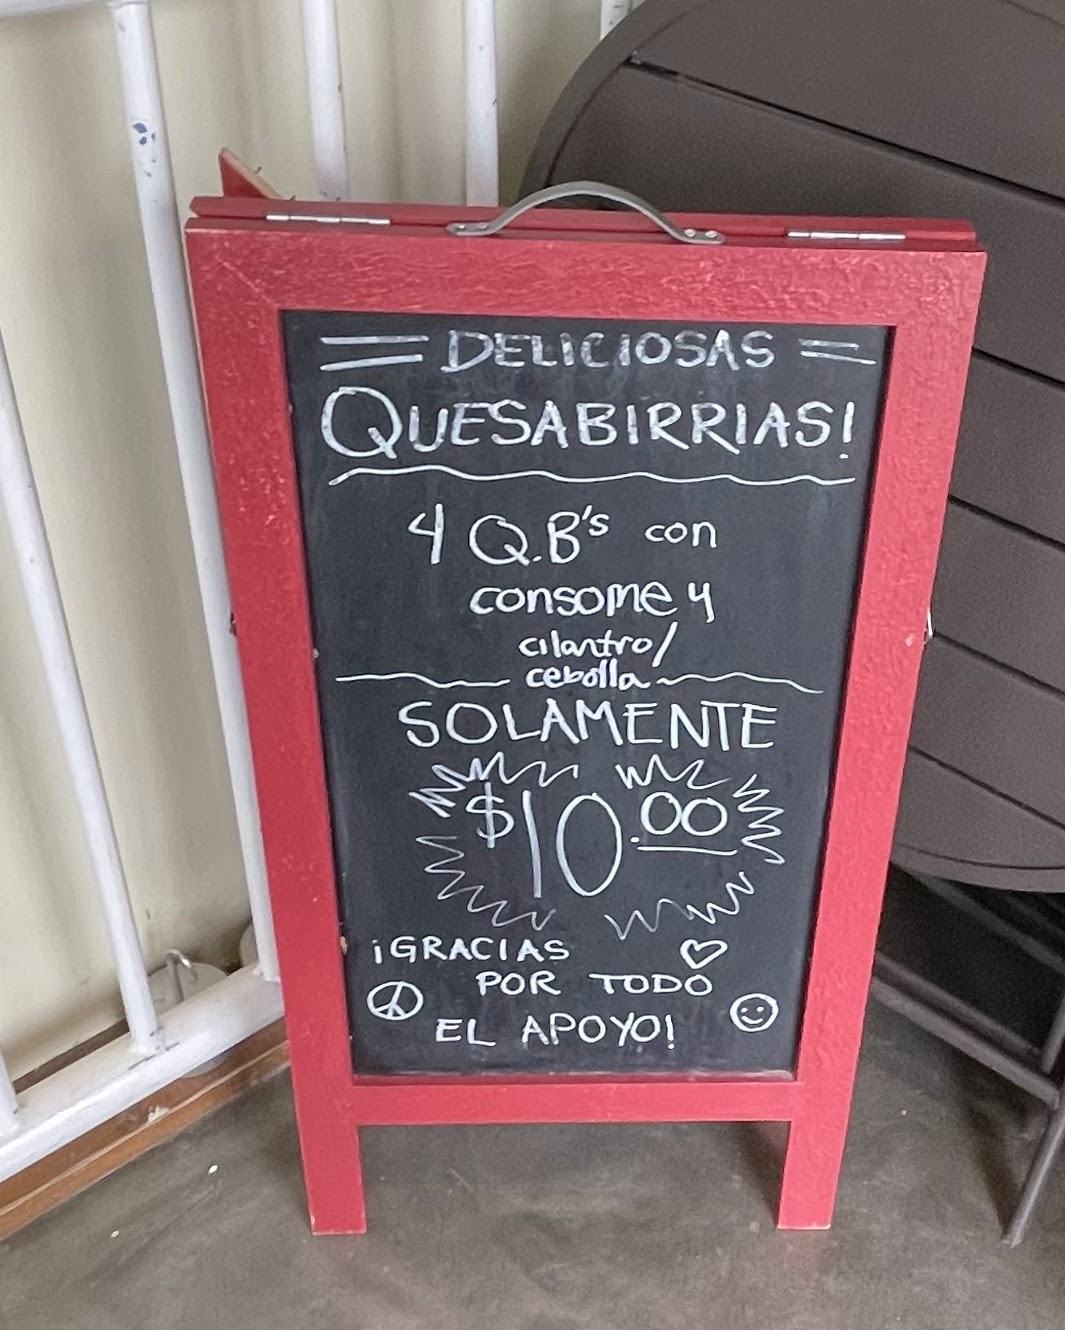 DELICIOSAS
QUESABIRRIAS!
4 Q.B's con
consome y
cilantro/
cebolla
SOLAMENTE
$10.00
¡GRACIAS
POR TODO
EL APOYO!